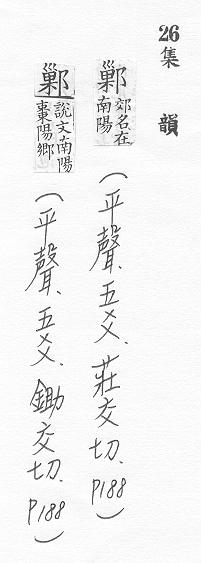 26集 韻
鄛 郊名在南陽（平聲、五爻、莊交切、P188）
鄛 說文南陽棗陽鄉（平聲、五爻、鋤交切、P188）